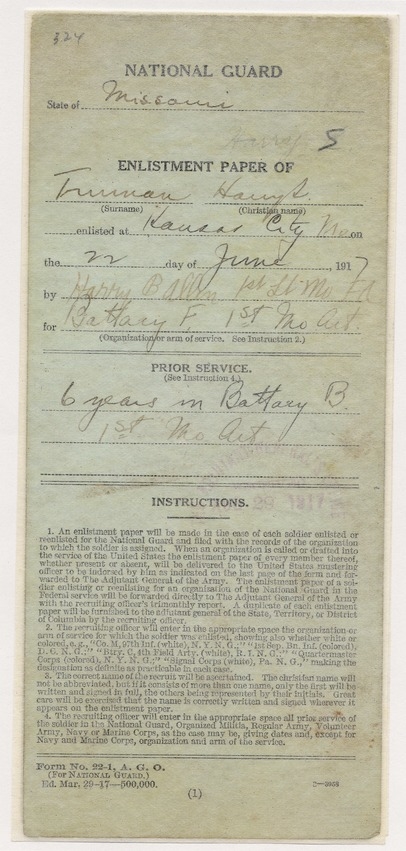 324
NATIONAL GUARD
State of Missouri
Harry S
ENLISTMENT PAPER OF
Truman Harry S.
(Surname) (Christian name)
enlisted at Kansas City Mo on
the 22 day of June, 1917
by Harry B Allen 1st Lt Mo F A
for Battary F. 1st Mo Art.
(Organization or arm of service. See Instruction 2.)
PRIOR SERVICE.
(See Instruction 4.)
6 years in Battary B.
1st Mo Art
29 1917
INSTRUCTIONS.
1. An enlistment paper will be made in the case of each soldier enlisted or
reenlisted for the National Guard and filed with the records of the organization
to which the soldier is assigned. When an organization is called or drafted into
the service of the United States the enlistment paper of every member thereof,
whether present or absent, will be delivered to the United States mustering
officer to be indorsed by him as indicated on the last page of the form and for-
warded to The Adjutant General of the Army. The enlistment paper of a sol-
dier enlisting or reenlisting for an organization of the National Guard in the
Federal service will be forwarded directly to The Adjutant General of the Army
with the recruiting officer's trimonthly report. A duplicate of each enlistment
paper will be furnished to the adjutant general of the State, Territory, or District
of Columbia by the recruiting officer.
2. The recruiting officer will enter in the appropriate space the organization or
arm of service for which the soldier was enlisted, showing also whether white or
colored, e.g., "Co. M, 97th Inf. (white), N. Y. N. G.;" "1st Sep. Bn. Inf. (colored),
D. C. N. G.;" "Btry. C, 4th Field Arty. (white), R. I. N. G.;" "Quartermaster
Corps (colored), N. Y. N. G.;" "Signal Corps (white), Pa. N. G.," making the
designation as definite as practicable in each case.
3. The correct name of the recruit will be ascertained. The christian name will
not be abbreviated, but if it consists of more than one name, only the first will be
written and signed in full, the others being represented by their initials. Great
care will be exercised that the name is correctly written and signed wherever it
appears on the enlistment paper.
4. The recruiting officer will enter in the appropriate space all prior service of
the soldier in the National Guard, Organized Militia, Regular Army, Volunteer
Army, Navy or Marine Corps, as the case may be, giving dates and, except for
Navy and Marine Corps, organization and arm of the service.
Form No. 22-1, A. G. O.
(For National Guard.)
Ed. Mar. 29-17—500,000.
(1)